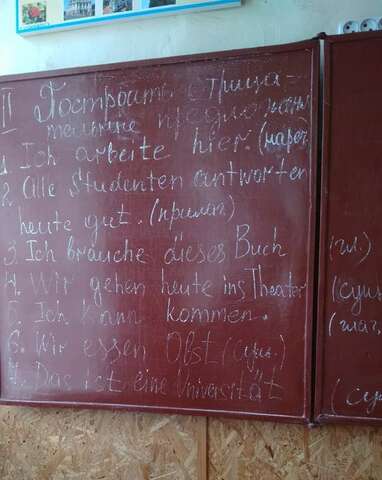 II Построить отрица-
тельные предложения
1. Ich arbeite hier. (нареч.)
2. Alle Studenten antworten
heute gut. (прилаг.)
3. Ich brauche dieses Buch (гл.)
4. Wir gehen heute ins Theater (сущ.
5. Ich kann kommen. (глаг.
6. Wir essen Obst (сущ.)
7. Das ist eine Universität (сущ